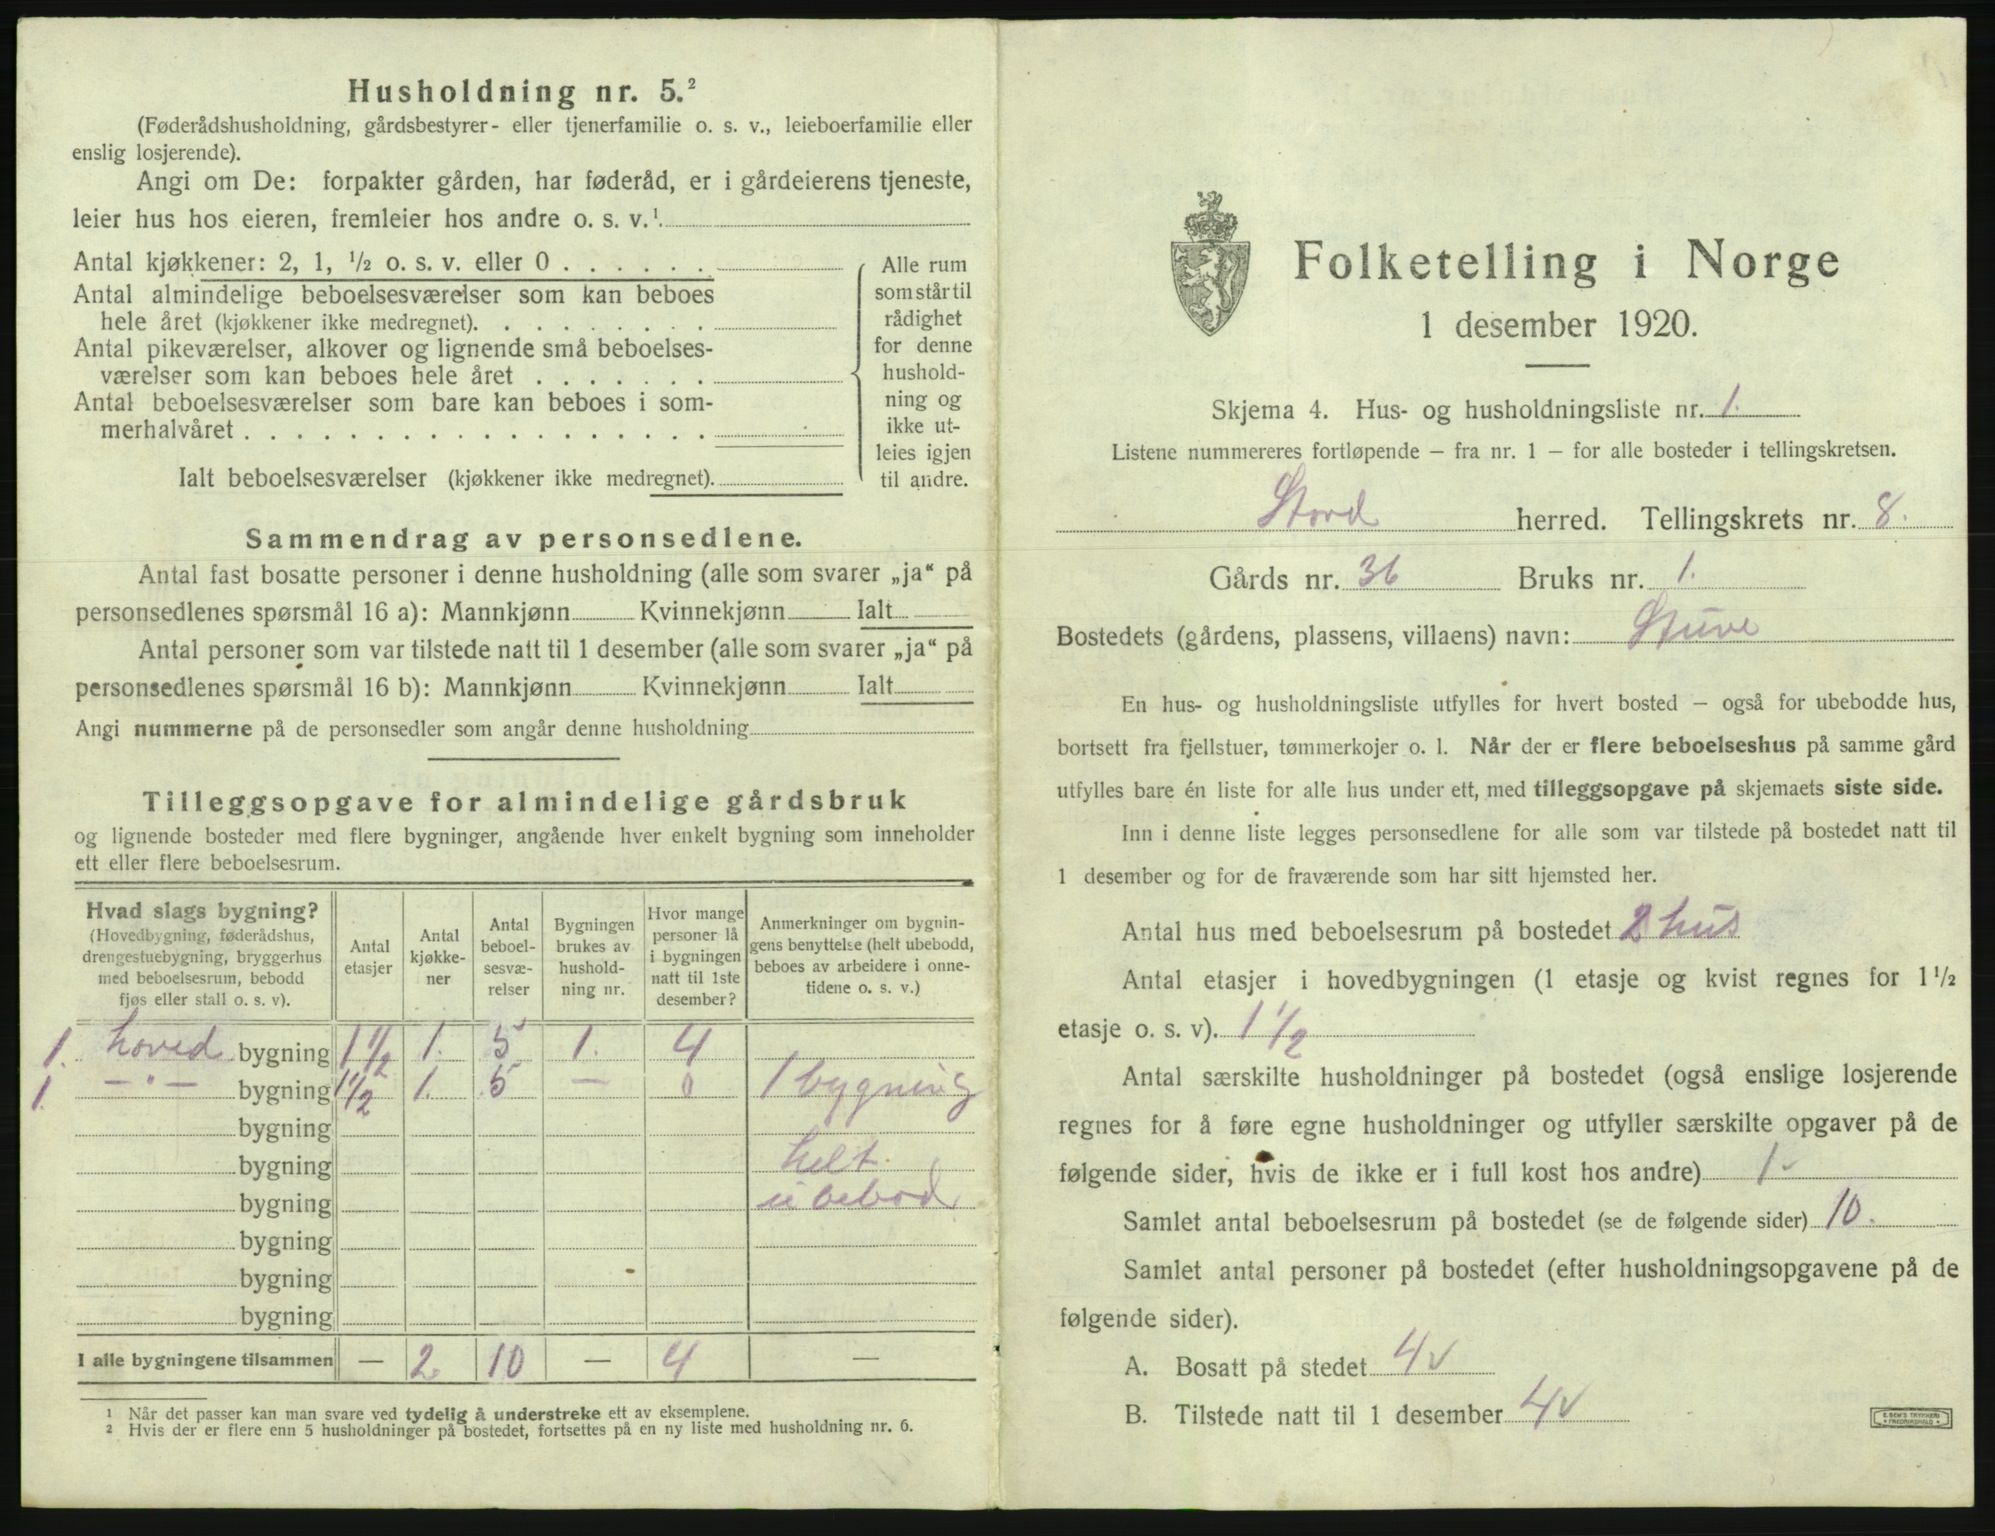 Husholdning nr. 5.²
(Føderådshusholdning, gårdsbestyrer- eller tjenerfamilie o. s. v., leieboerfamilie eller
enslig losjerende).
Angi om De: forpakter gården, har føderåd, er i gårdeierens tjeneste,
leier hus hos eieren, fremleier hos andre o. s. v.¹.
Antal kjøkkener: 2, 1, ½ o. s. v. eller 0 . . . . . .
Antal almindelige beboelsesværelser som kan beboes
hele året (kjøkkener ikke medregnet). . . . . . . . .
Antal pikeværelser, alkover og lignende små beboelses-
værelser som kan beboes hele året . . . . . . .
Antal beboelsesværelser som bare kan beboes i som-
merhalvåret . . . . . . . . . . . . . . . . . .
Ialt beboelsesværelser (kjøkkener ikke medregnet).
Alle rum
som står til
rådighet
for denne
hushold-
ning og
ikke ut-
leies igjen
til andre.
Sammendrag av personsedlene.
Antal fast bosatte personer i denne husholdning (alle som svarer „ja“ på
personsedlenes spørsmål 16 a): Mannkjønn Kvinnekjønn Ialt
Antal personer som var tilstede natt til 1 desember (alle som svarer „ja“ på
personsedlenes spørsmål 16 b): Mannkjønn Kvinnekjønn Ialt
Angi nummerne på de personsedler som angår denne husholdning
Tilleggsopgave for almindelige gårdsbruk
og lignende bosteder med flere bygninger, angående hver enkelt bygning som inneholder
ett eller flere beboelsesrum.
Hvad slags bygning?
(Hovedbygning, føderådshus,
drengestuebygning, bryggerhus
med beboelsesrum, bebodd
fjøs eller stall o. s. v).
Antal
etasjer
Antal
kjøkke-
ner
Antal
beboel-
sesvæ-
relser
Bygningen
brukes av
hushold-
ning nr.
Hvor mange
personer lå
i bygningen
natt til 1ste
desember?
Anmerkninger om bygnin-
gens benyttelse (helt ubebodd,
beboes av arbeidere i onne-
tidene o. s. v.)
1. hoved bygning 1½ 1. 5 1. 4
1. — " — bygning 1½ 1. 5 — 0 1 bygning
bygning
bygning helt
bygning ubebod
bygning
bygning
bygning
I alle bygningene tilsammen — 2. 10 — 4 —
¹ Når det passer kan man svare ved tydelig å understreke ett av eksemplene.
² Hvis der er flere enn 5 husholdninger på bostedet, fortsettes på en ny liste med husholdning nr. 6.
Folketelling i Norge
1 desember 1920.
Skjema 4. Hus- og husholdningsliste nr. 1.
Listene nummereres fortløpende — fra nr. 1 — for alle bosteder i tellingskretsen.
Stord herred. Tellingskrets nr. 8.
Gårds nr. 36 Bruks nr. 1.
Bostedets (gårdens, plassens, villaens) navn: Stuve
En hus- og husholdningsliste utfylles for hvert bosted — også for ubebodde hus,
bortsett fra fjellstuer, tømmerkojer o. l. Når der er flere beboelseshus på samme gård
utfylles bare én liste for alle hus under ett, med tilleggsopgave på skjemaets siste side.
Inn i denne liste legges personsedlene for alle som var tilstede på bostedet natt til
1 desember og for de fraværende som har sitt hjemsted her.
Antal hus med beboelsesrum på bostedet 2 hus
Antal etasjer i hovedbygningen (1 etasje og kvist regnes for 1½
etasje o. s. v). 1½
Antal særskilte husholdninger på bostedet (også enslige losjerende
regnes for å føre egne husholdninger og utfyller særskilte opgaver på de
følgende sider, hvis de ikke er i full kost hos andre) 1 v
Samlet antal beboelsesrum på bostedet (se de følgende sider) 10.
Samlet antal personer på bostedet (efter husholdningsopgavene på de
følgende sider).
A. Bosatt på stedet 4 v
B. Tilstede natt til 1 desember 4 v
E. SEM'S TRYKKERI
FREDRIKSHALD